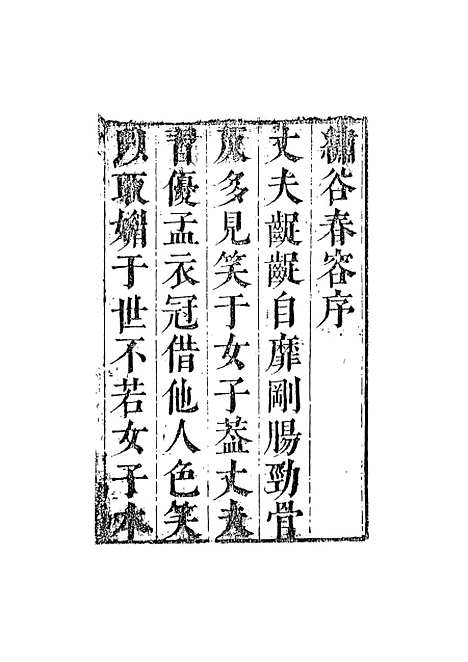 繡谷春容序
丈夫齷齪自靡剛腸勁骨
灰多見笑于女子葢丈夫
習優孟衣冠借他人色笑
以取媚于世不若女子本